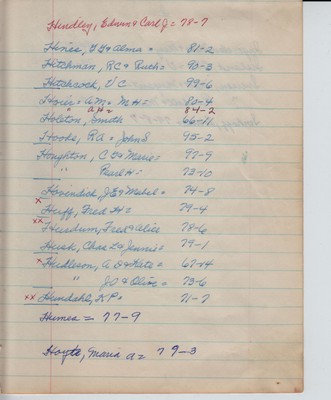 Hindley, Edwin & Carl J = 78-7
Hines, F F & Alma = 81-2
Hitchman, R C & Ruth = 93-3
Hitchcock, V C 99-6
A M = M H = 80-4
" A H = 84-2
Holston, Smith 66-11
Hooks, R A = John S 95-2
Houghton, C E & Marie = 97-9
" Pearl H = 73-10
Hovindick, J E & Mabel = 74-8
x Huff, Fred H = 79-4
xx Fred & Alice 78-6
Husk, Chas L & Jennie = 79-1
x A D & Kate = 67-14
" J O & Olive = 73-6
xx K P = 71-7
Humes = 77-9
Hoyte, Maria A = 79-3